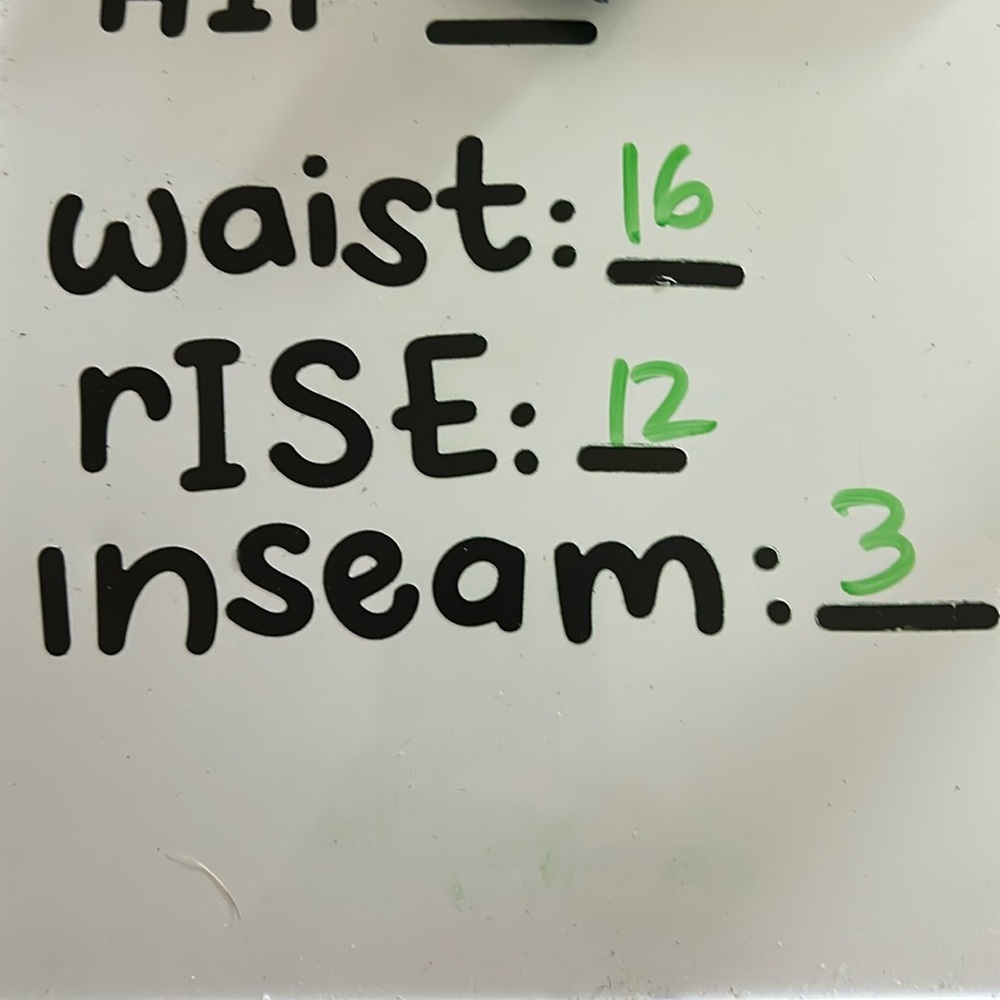 HIP
waist: 16
rISE: 12
Inseam: 3